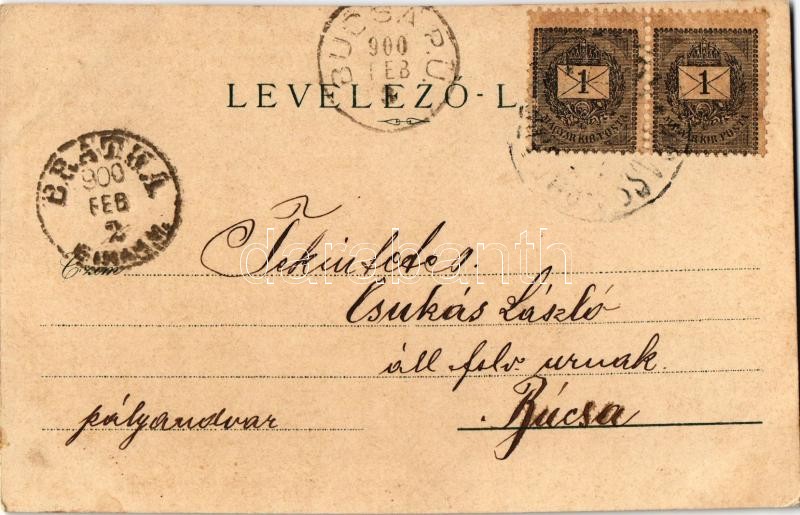 BUCSA P.U.
900
FEB
LEVELEZŐ-L
1
MAGYAR KIR. POSTA
1
MAGYAR KIR. POSTA
BRÁTKA
900
FEB
2
darabanth
Tekintetes
Csukás László
áll felv. urnak.
pályaudvar
Búcsa